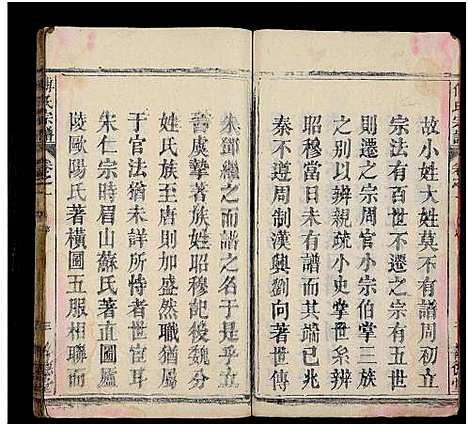 故小姓大姓莫不有譜周初立
宗法有百世不遷之宗有五世
則遷之宗周官小宗伯掌三族
之別以辨親疏小史掌世系辨
昭穆當日有譜而其端已兆
秦不遵周制漢興劉向著世傳
朱鄧繼之而譜之名于是乎立
晉虞摯著族姓昭穆記後魏分
姓氏族至唐則加盛然職猶屬
于官法猶未詳所恃者世官耳
宋仁宗時眉山蘇氏著直圖廬
陵歐陽氏著橫圖五服相聯而
傅氏宗譜
卷之一